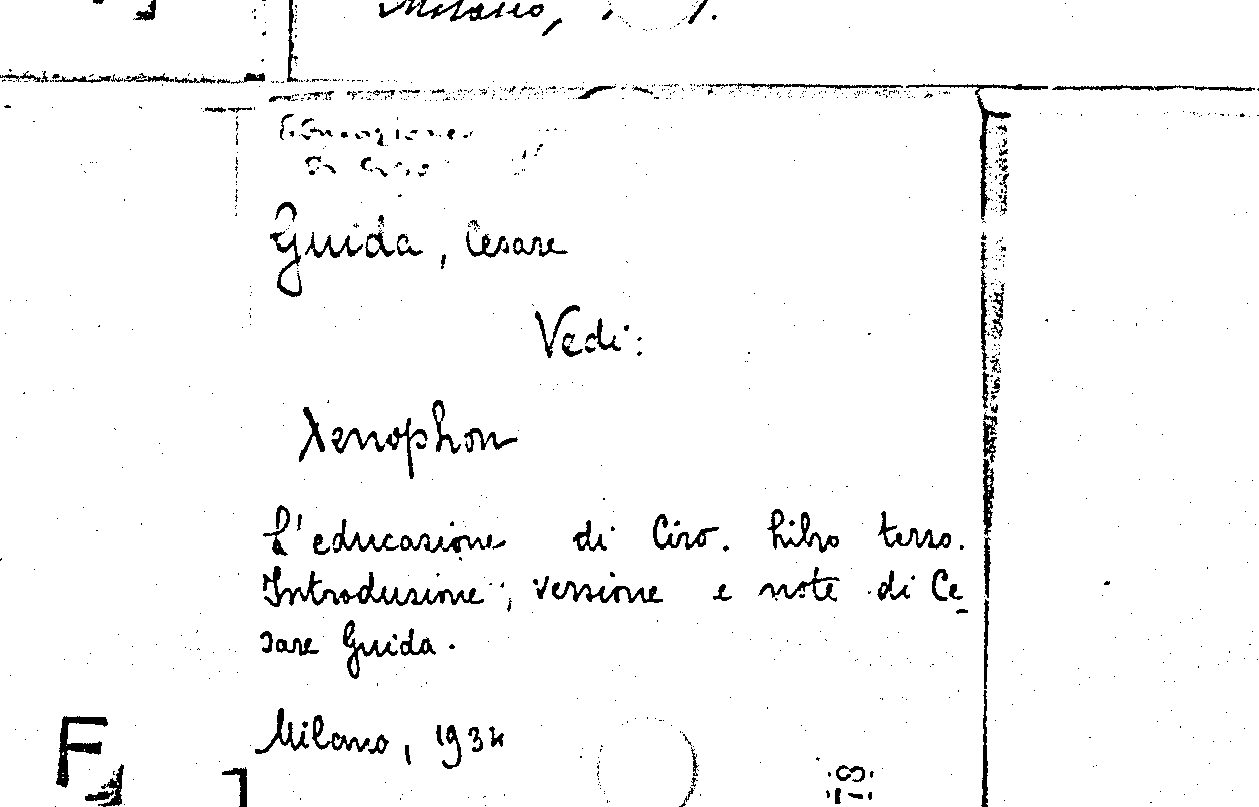 Milano, 
Educazione
di Ciro
Guida, Cesare
Vedi:
Xenophon
L'educazione di Ciro. Libro terzo.
Introduzione, versione e note di Ce-
sare Guida.
Milano, 1934
F